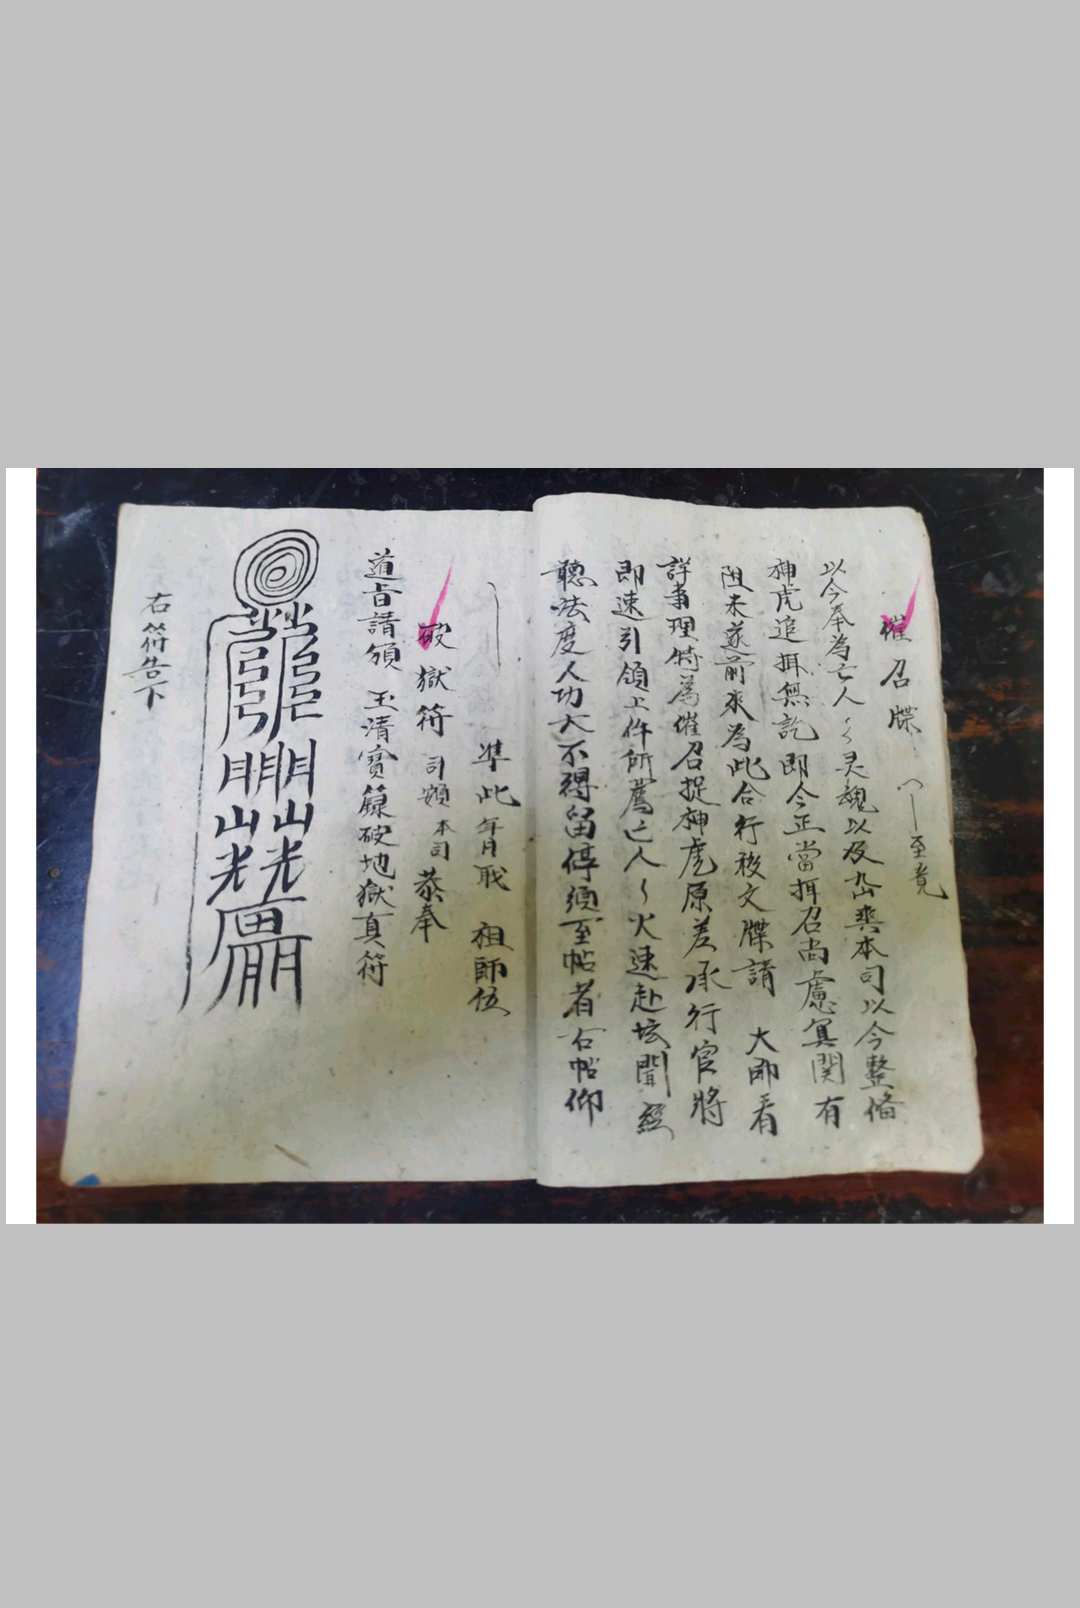 催召牒 至竟
以今奉為亡人 灵魂以及 本司以今整俻
神虎追 無訖即今正當 召尚慮冥関有
阻未遂前來為此合行移文牒請 大 看
詳事理特為催召捉神虎原差承行官將
即速引領上件所薦亡人 火速赴坛聞經
聽法度人功大不得留停須至帖者右帖仰
準此年月 祖師位
破獄符 司額 本司 恭奉
道旨請頒 玉清寶籙破地獄真符
右符告下